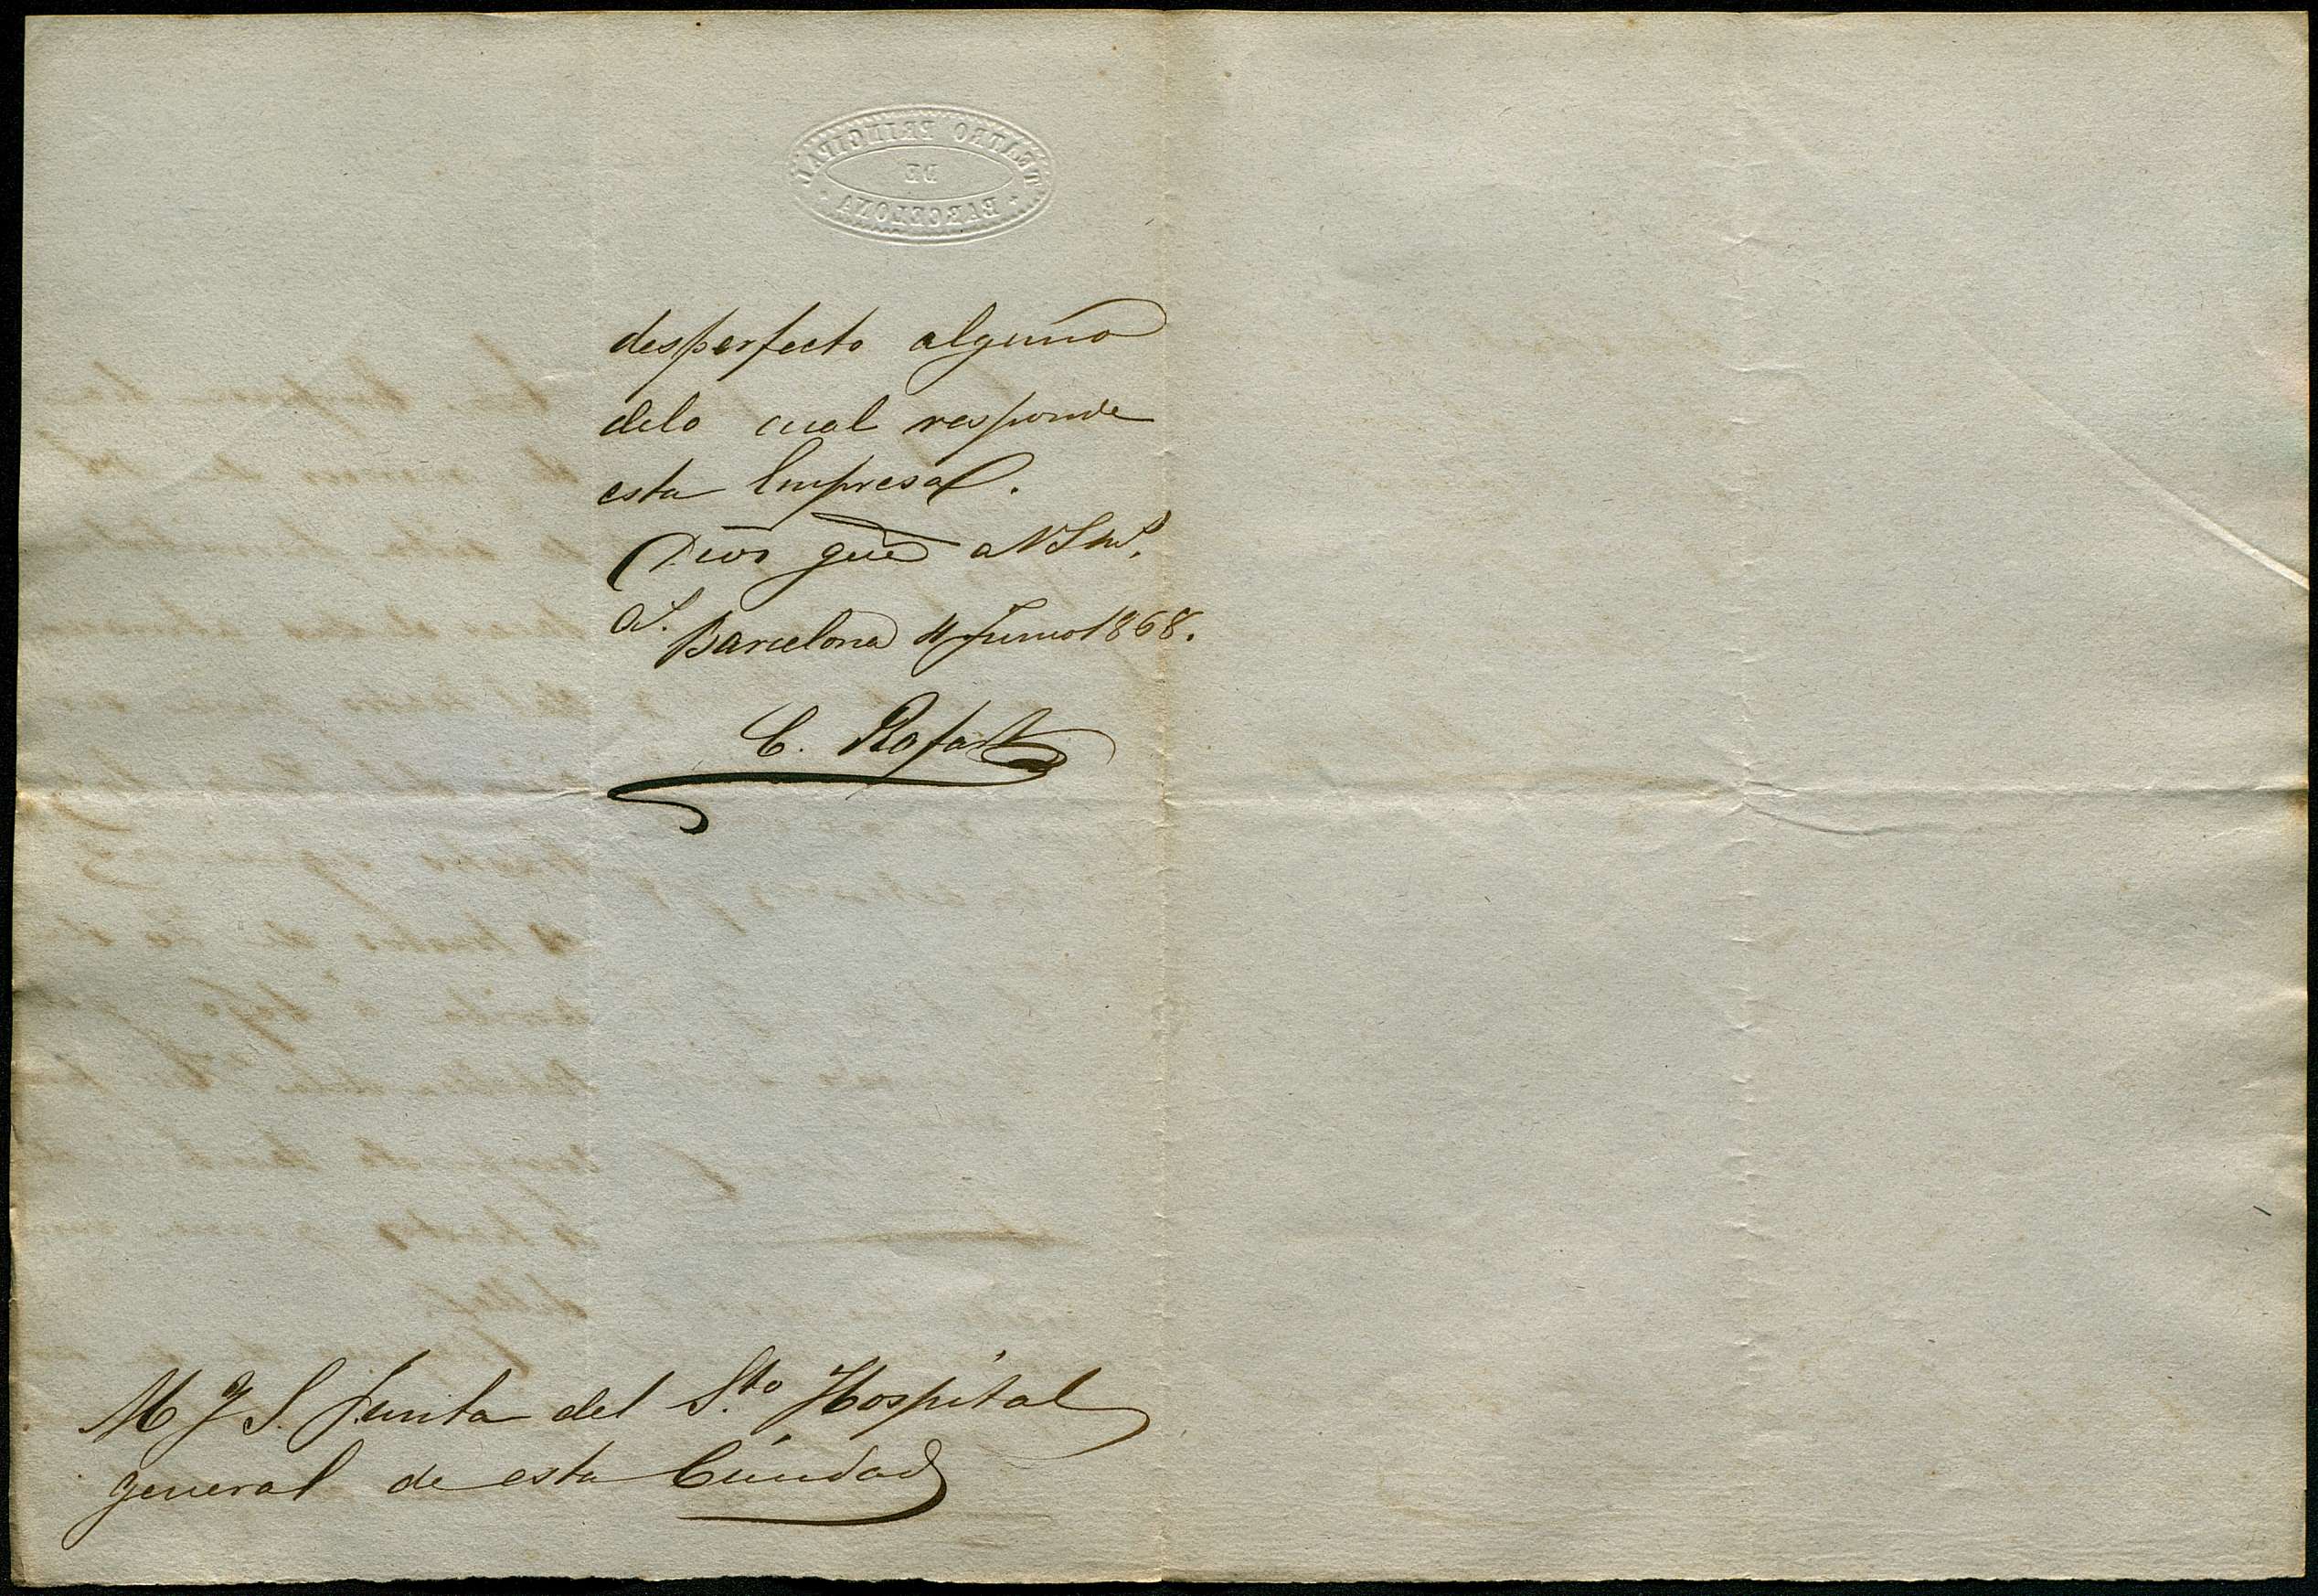 TEATRO PRINCIPAL
DE
BARCELONA
desperfecto alguno
delo cual responde
esta Empresa.
Dios gue a V S ms.
as.
Barcelona 4 Junio 1868.
C. Rofart
M Y S. Junta del Sto Hospital
general de esta Ciudad